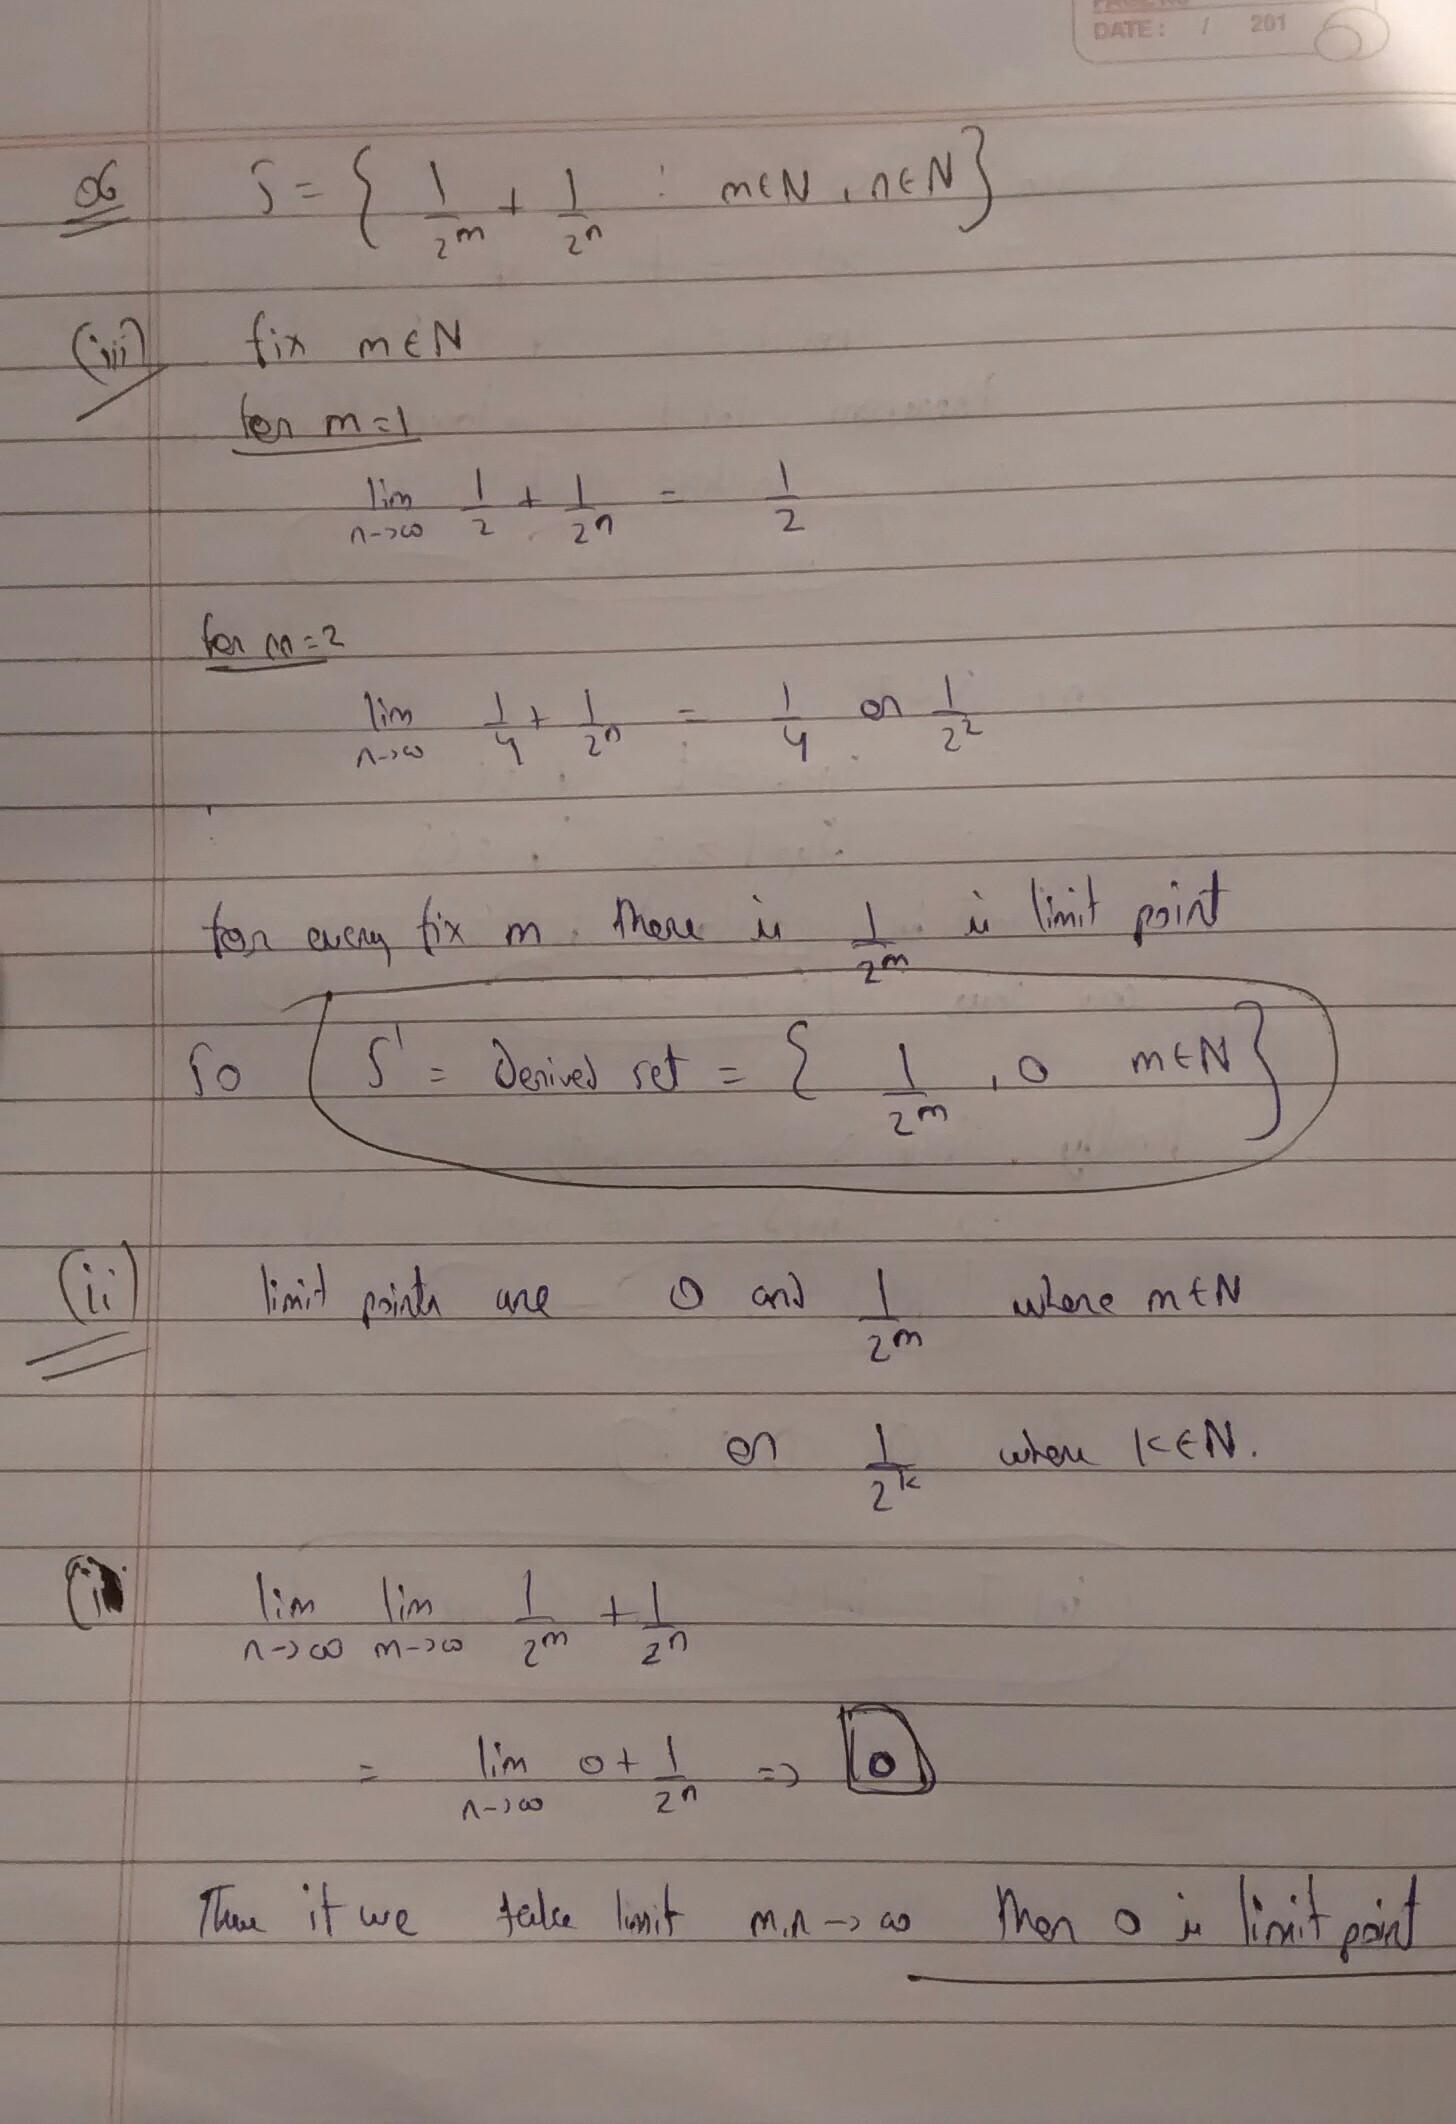 DATE: / 201
06 S = { 1/2^m + 1/2^n : m∈N, n∈N }
(iii) fix m∈N
for m=1
lim n->∞ 1/2 + 1/2^n = 1/2
for m=2
lim n->∞ 1/4 + 1/2^n = 1/4 or 1/2^2
for every fix m there is 1/2^m is limit point
So S' = Derived set = { 1/2^m , 0 m∈N }
(ii) limit points are 0 and 1/2^m where m∈N
or 1/2^k where k∈N.
(i) lim n->∞ lim m->∞ 1/2^m + 1/2^n
= lim n->∞ 0 + 1/2^n => 0
if we take limit m,n -> ∞ then 0 is limit point